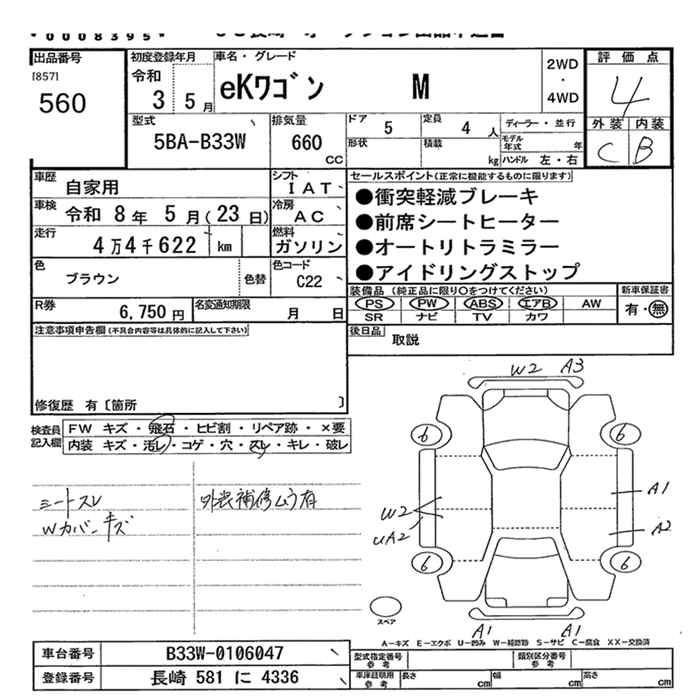 00008395
出品番号 初度登録年月 車名・グレード 2WD 評価点
[857] 令和 ・
560 3 5月 eKワゴン M 4WD 4
型式 排気量 ドア 5 定員 4人 ディーラー・並行 外装 内装
5BA-B33W 660 形状 積載 モデル年式 年 C B
CC kg ハンドル 左・右
車歴 自家用 シフト IAT セールスポイント(正常に機能するものに限ります)
車検 令和 8年 5月(23日) 冷房 AC ●衝突軽減ブレーキ
走行 4万4千622 km 燃料 ガソリン ●前席シートヒーター
●オートリトラミラー
色 ブラウン 色替 色コード C22 ●アイドリングストップ
装備品(純正品に限り○をつけてください) 新車保証書
R券 6,750円 名変通知期限 月 日 PS PW ABS エアB AW 有・無
SR ナビ TV カワ
注意事項申告欄(不具合内容等は具体的に記入して下さい) 後日品 取説
修復歴 有〔箇所 〕
検査員記入欄 FW キズ・飛石・ヒビ割・リペア跡・×要
内装 キズ・汚レ・コゲ・穴・スレ・キレ・破レ
W2 A3
6 6
シートスレ 外装補修ムラ有
Wカバーキズ
W2 A1
UA2 A2
6 6
スペア
A1 A1
A-キズ E-エクボ U-凹み W-補修跡 S-サビ C-腐食 XX-交換済
車台番号 B33W-0106047 型式指定番号 参考 類別区分番号 参考
登録番号 長崎 581 に 4336 車庫証明用 参考 長さ cm 幅 cm 高さ cm